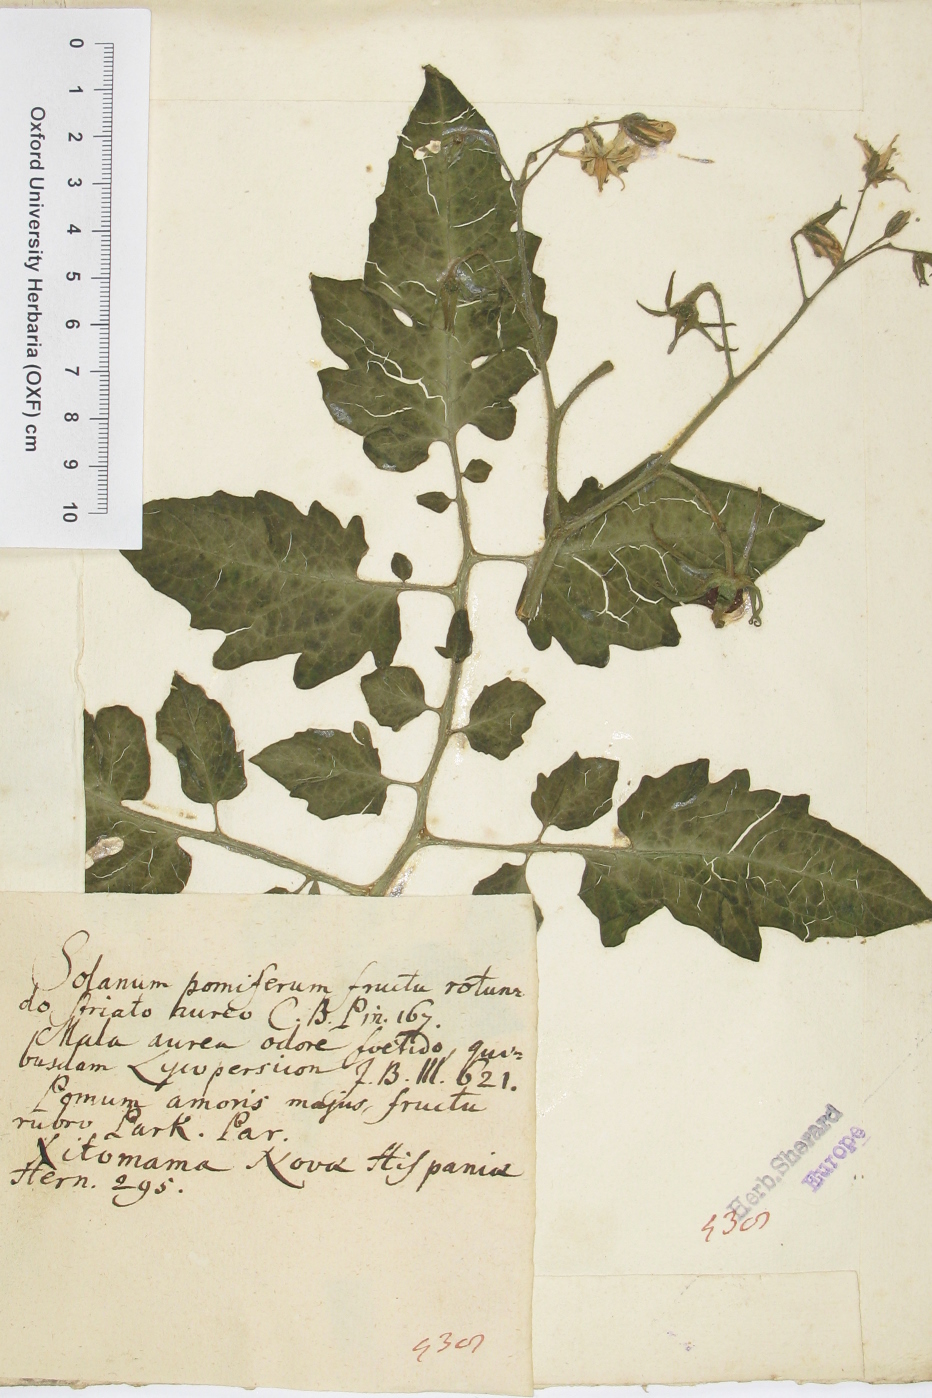 0 1 2 3 4 5 6 7 8 9 10
Oxford University Herbaria (OXF) cm
Solanum pomiferum fructu rotun=
do striato aureo C. B. Pin. 167.
Mala aurea odore foetido, qui=
busdam Lycopersicon J. B. III. 621.
Pomum amoris majus, fructu
rubro Park. Par.
Xitomama Nova Hispania
Hern. 295.
Herb. Sherard
Europe